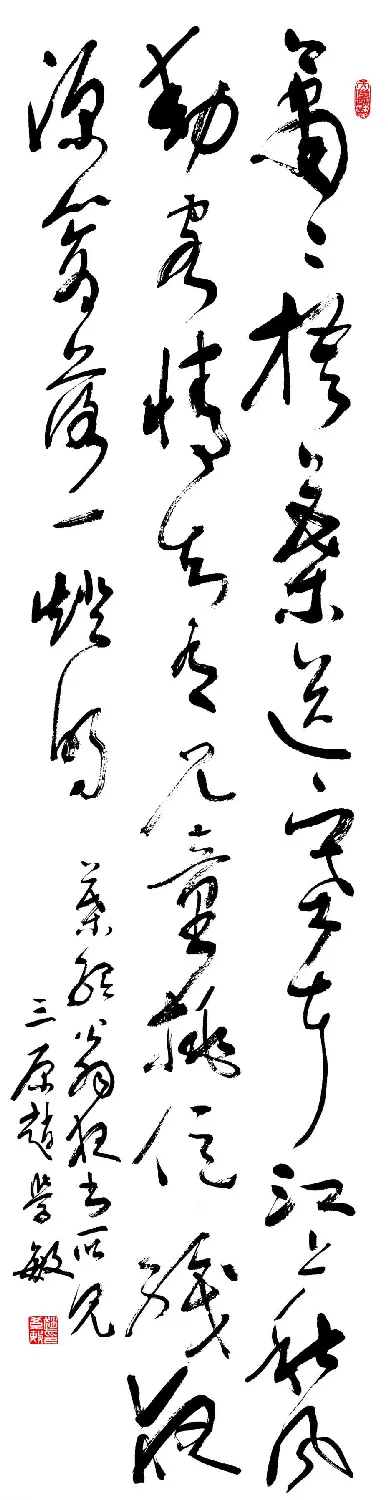 蕭〻梧葉送寒聲江上秋風
動客情知有兒童挑促織夜
深籬落一燈明
葉紹翁夜書所見
三原趙學敏